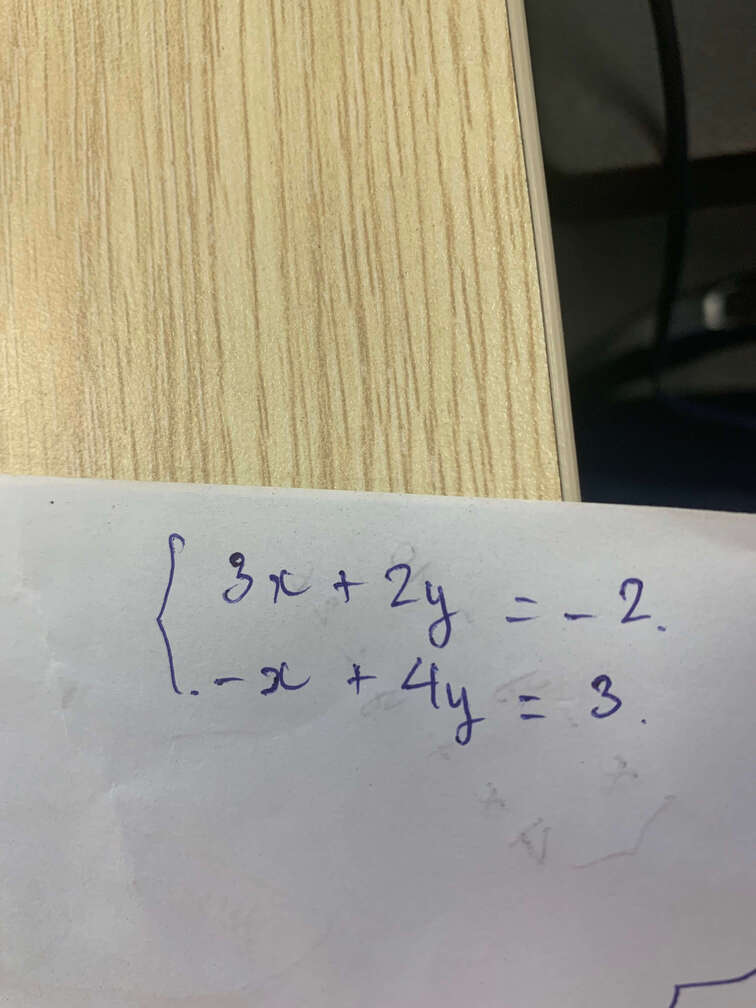 3x + 2y = - 2.
-x + 4y = 3.